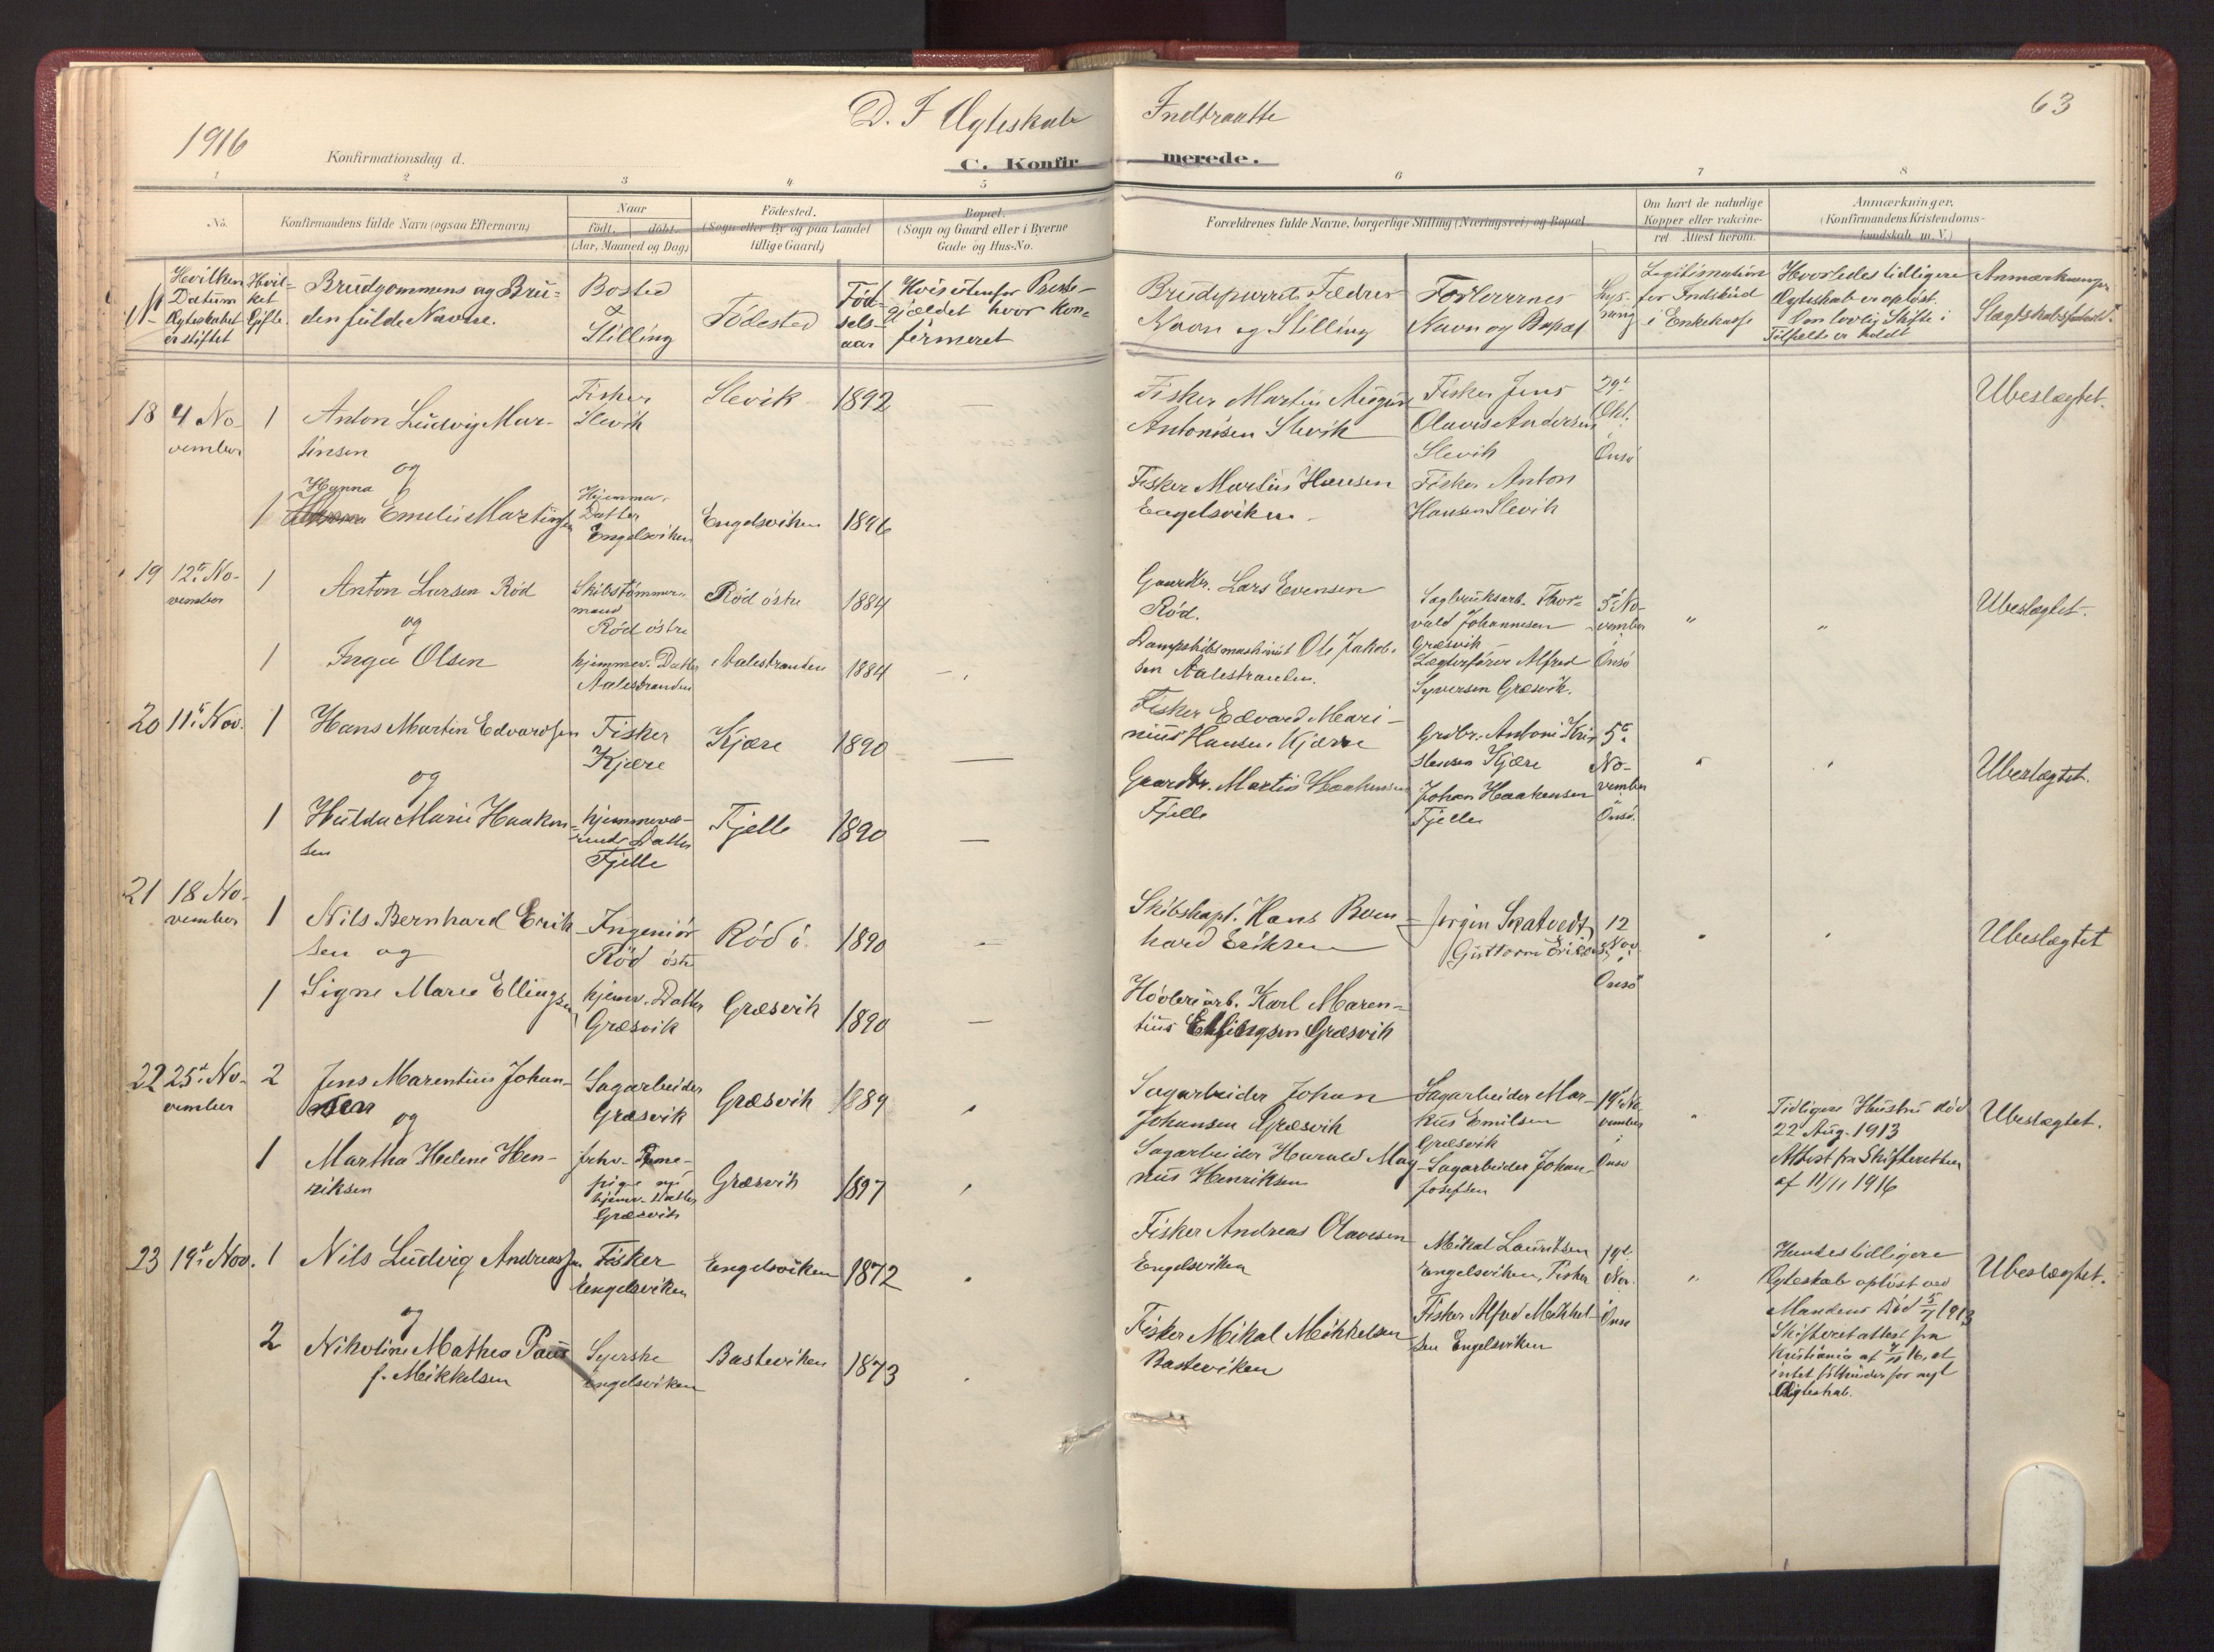 1916
D. I Ægteskab Indtraatte
63
Konfirmationsdag d.
C. Konfirmerede.
1 2 3 4 5 6 7 8
No.
Konfirmandens fulde Navn (ogsaa Efternavn)
Naar
födt, döbt.
(Aar, Maaned og Dag)
Födested.
(Sogn eller By og paa Landet
tillige Gaard)
Bopæl.
(Sogn og Gaard eller i Byerne
Gade og Hus-No.
Forældrenes fulde Navne, borgerlige Stilling (Næringsvei) og Bopæl
Om havt de naturlige
Kopper eller vakcine-
ret Attest herom.
Anmærkninger.
(Konfirmandens Kristendoms-
kundskab m. V.)
No
Hvilken
Datum
Ægteskabet
er stiftet
Hvil-
ket
Gifte.
Brudgommens og Bru-
den fulde Navne.
Bosted
&
Stilling
Födested
Föd-
sels-
aar
Hvis utenfor Preste-
gjældet hvor kon-
firmeret
Brudeparrets Fædres
Navn og Stilling
Forlovernes
Navn og Bopæl
Lys-
ning
Legitimation
for Indskud
i Enkekasse
Hvorledes tidligere
Ægteskab er oplöst.
Om lovlig Skifte i
Tilfælde er holdt
Anmærkninger
Slægtskabsforhold.
18 4 No- 1 Anton Ludvig Mar-
vember tinsen
og
Fisker
Slevik
Slevik 1892 —
Fisker Martin August
Antonisen Slevik
Fisker Jens
Olaves Andersen
Slevik
29'
Okt.
i
Onsö
Ubeslægtet.
1 Hanna
Emelie Martinsen
Hjemmev.
Datter
Engelsviken
Engelsviken 1896
Fisker Martin Hansen
Engelsviken
Fisker Anton
Hansen Slevik
19 12te No- 1 Anton Larsen Röd
vember
og
Skibstömmer-
mand
Röd östre
Röd östre 1884
Gaardbr. Lars Evensen
Röd.
Sagbruksarb. Thor-
vald Johannesen
Græsvik
5' No-
vember
i
Onsö
" "
Ubeslægtet.
1 Inga Olsen
hjemmev. Datter
Aalestranden
Aalestranden 1884 —
Dampskibsmaskinist Ole Jakob-
sen Aalestranden.
Lægterförer Alfred
Syversen Græsvik.
20 11te Nov. 1 Hans Martin Edvardsen
og
Fisker
Kjære
Kjære 1890 —
Fisker Edvard Mari-
nius Hansen Kjære
Grdbr. Antoni Kri-
stensen Kjære
5te
No-
vember
Onsö.
" "
Ubeslægtet.
1 Hulda Marie Haaken-
sen
hjemmevæ-
rende Datter
Fjelle
Fjelle 1890 —
Gaardbr. Martin Haakensen
Fjelle
Johan Haakensen
Fjelle
21 18 No- 1 Nils Bernhard Erik-
vember sen og
Ingeniör
Röd östr
Röd ö. 1890 —
Skibskapt. Hans Bern-
hard Eriksen
Jörgen Skatvedt,
Guttorm Eriksen
12
Nov.
i
Onsö
" "
Ubeslægtet
1 Signe Marie Ellingsen
hjemv. Datter
Græsvik
Græsvik 1890 —
Hövleriarb. Karl Maren-
tius Ellingsen Græsvik
22 25' No- 2 Jens Marentius Johan-
vember sen
og
Sagarbeider
Græsvik
Græsvik 1889 "
Sagarbeider Johan
Johansen Græsvik
Sagarbeider Mar-
kus Emilsen
Græsvik
19' No-
vember
i
Onsö
"
Tidligere Hustru död
22 Aug. 1913
Attest fra Skifteretten
af 11/11 1916
Ubeslægtet.
1 Martha Helene Hen-
riksen
hjemv. Datter
Græsvik
Græsvik 1897 "
Sagarbeider Harald Mag-
nus Henriksen
Sagarbeider Johan
Josefsen
23 19' Nov. 1 Nils Ludvig Andreassen
og
Fisker
Engelsviken
Engelsviken 1872 "
Fisker Andreas Olavesen
Engelsviken
Mikal Lauritsen
Engelsviken, Fisker
19de
Nov.
i
Onsö
"
Hendes tidligere
Ægteskab oplöst ved
Mandens Död 5/7 1913
Skifteret attest fra
Kristiania af 16, at
intet til hinder for nyt
Ægteskab.
Ubeslægtet.
2 Nikoline Mathea Paus
f. Mikkelsen
Syerske
Engelsviken
Basteviken 1873 "
Fisker Mikal Mikkelsen
Basteviken
Fisker Alfred Mikkel-
sen Engelsviken